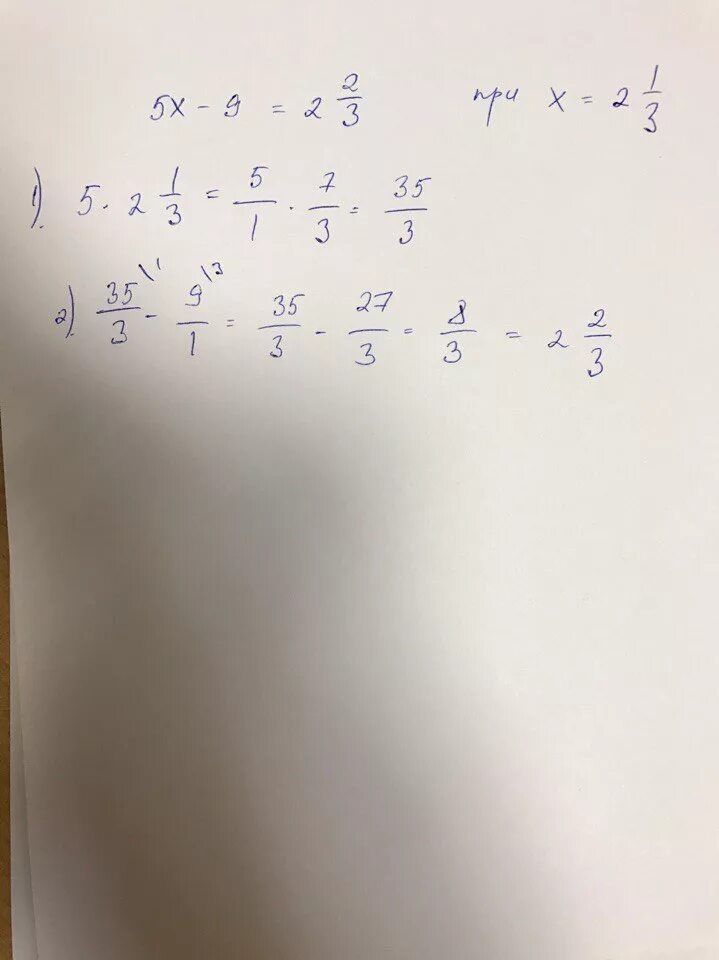 5x - 9 = 2 2/3 при x = 2 1/3
1). 5 · 2 1/3 = 5/1 · 7/3 = 35/3
2). 35/3 \1 - 9/1 \3 = 35/3 - 27/3 = 8/3 = 2 2/3